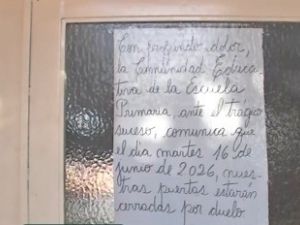 Con profundo dolor,
la Comunidad Educa-
tiva de la Escuela
Primaria, ante el trágico
suceso, comunica que
el día martes 16 de
junio de 2026, nues-
tras puertas estarán
cerradas por duelo